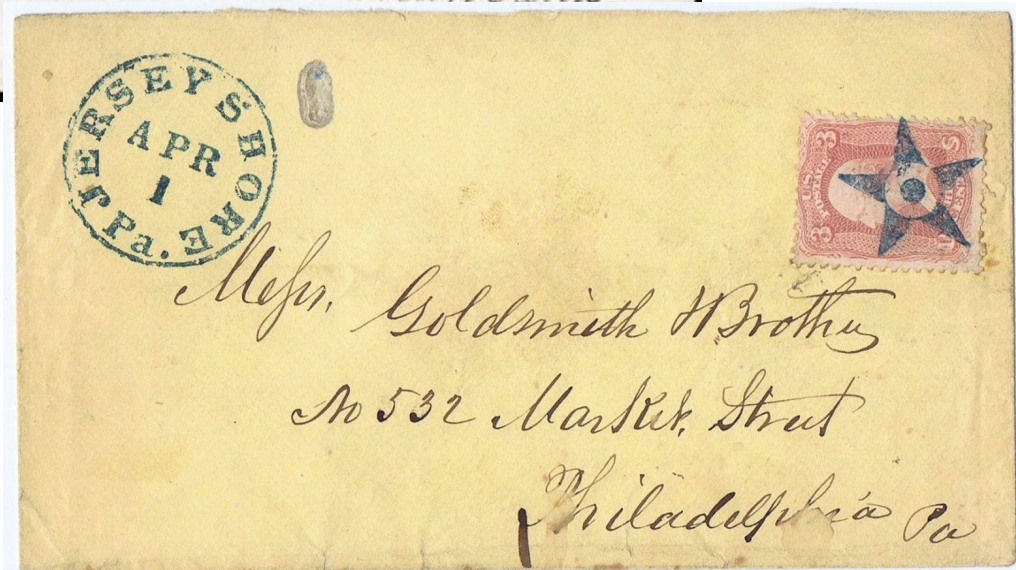 JERSEY SHORE
APR
1
Pa.
3
U.S. POSTAGE
3
Messrs. Goldsmith & Brothers
No 532 Market, Street
Philadelphia Pa